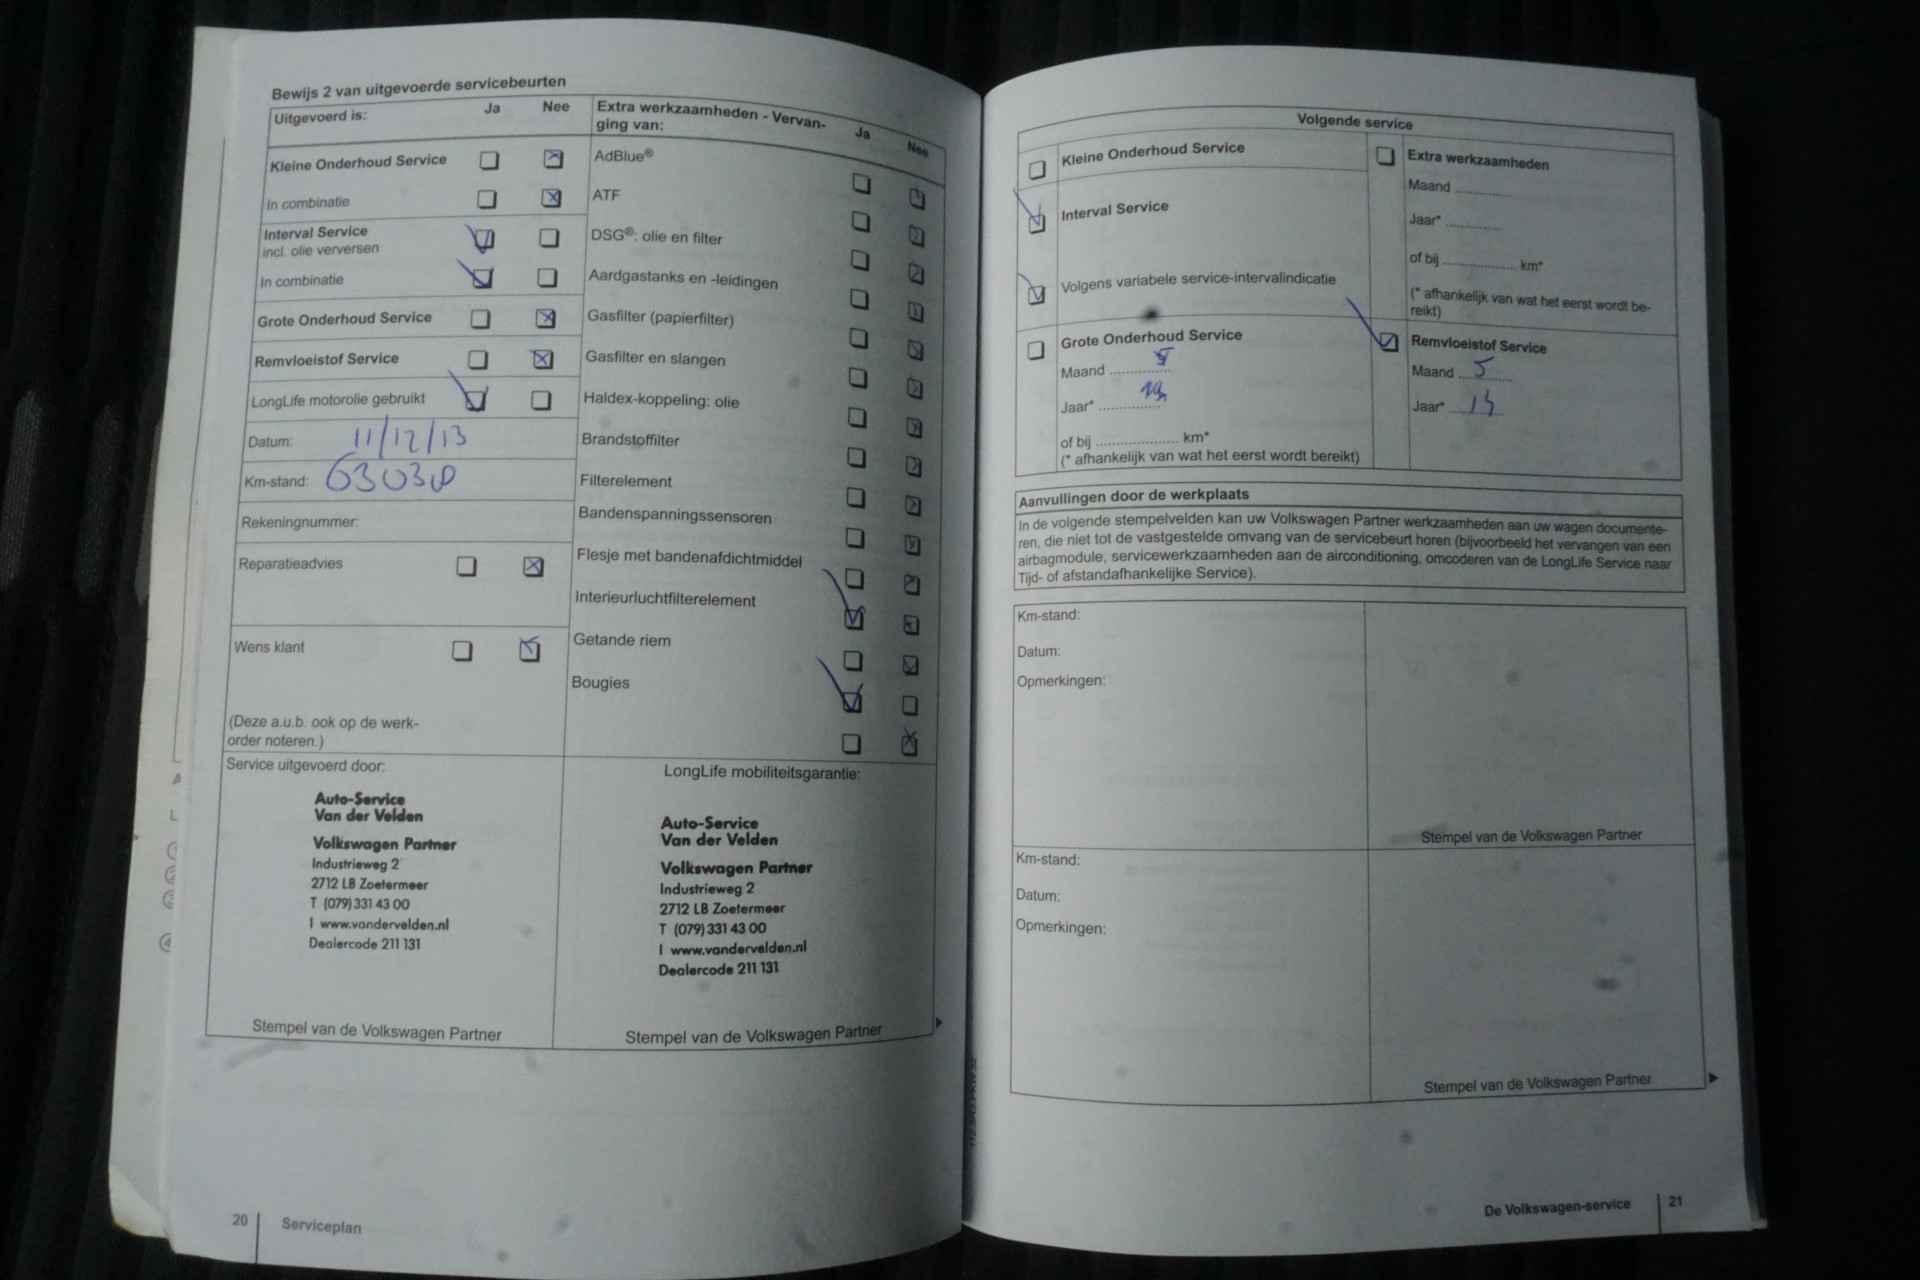 Bewijs 2 van uitgevoerde servicebeurten
Uitgevoerd is: Ja Nee
Kleine Onderhoud Service
In combinatie
Interval Service
incl. olie verversen
In combinatie
Grote Onderhoud Service
Remvloeistof Service
LongLife motorolie gebruikt
Datum: 11/12/13
Km-stand:
Rekeningnummer:
Reparatieadvies
Wens klant
(Deze a.u.b. ook op de werk-
order noteren.)
Extra werkzaamheden - Vervan-
ging van: Ja Nee
AdBlue®
ATF
DSG®: olie en filter
Aardgastanks en -leidingen
Gasfilter (papierfilter)
Gasfilter en slangen
Haldex-koppeling: olie
Brandstoffilter
Filterelement
Bandenspanningssensoren
Flesje met bandenafdichtmiddel
Interieurluchtfilterelement
Getande riem
Bougies
Service uitgevoerd door:
Auto-Service
Van der Velden
Volkswagen Partner
Industrieweg 2
2712 LB Zoetermeer
T (079) 331 43 00
I www.vandervelden.nl
Dealercode 211 131
Stempel van de Volkswagen Partner
LongLife mobiliteitsgarantie:
Auto-Service
Van der Velden
Volkswagen Partner
Industrieweg 2
2712 LB Zoetermeer
T (079) 331 43 00
I www.vandervelden.nl
Dealercode 211 131
Stempel van de Volkswagen Partner
20 Serviceplan
Volgende service
Kleine Onderhoud Service
Interval Service
Volgens variabele service-intervalindicatie
Grote Onderhoud Service
Maand
Jaar*
of bij ........ km*
(* afhankelijk van wat het eerst wordt bereikt)
Extra werkzaamheden
Maand ........
Jaar* ........
of bij ........ km*
(* afhankelijk van wat het eerst wordt be-
reikt)
Remvloeistof Service
Maand 5
Jaar*
Aanvullingen door de werkplaats
In de volgende stempelvelden kan uw Volkswagen Partner werkzaamheden aan uw wagen documente-
ren, die niet tot de vastgestelde omvang van de servicebeurt horen (bijvoorbeeld het vervangen van een
airbagmodule, servicewerkzaamheden aan de airconditioning, omcoderen van de LongLife Service naar
Tijd- of afstandafhankelijke Service).
Km-stand:
Datum:
Opmerkingen:
Stempel van de Volkswagen Partner
Km-stand:
Datum:
Opmerkingen:
Stempel van de Volkswagen Partner
De Volkswagen-service 21